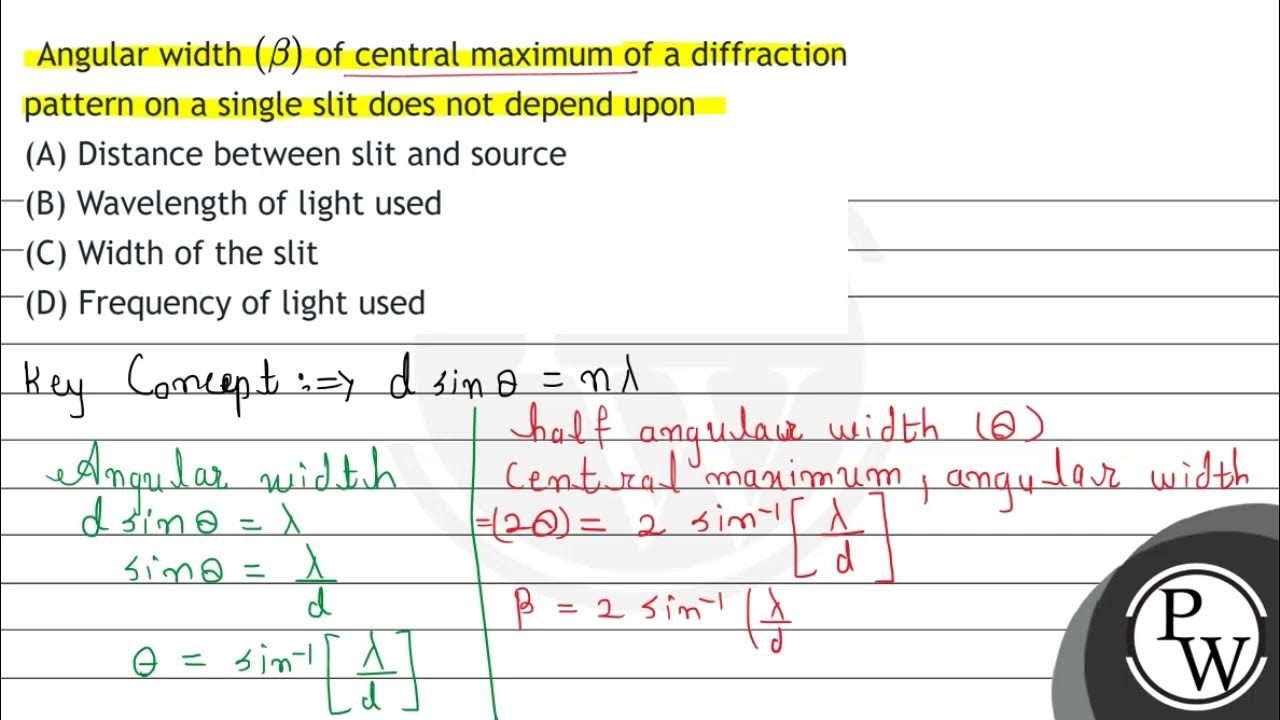 Angular width (β) of central maximum of a diffraction
pattern on a single slit does not depend upon
(A) Distance between slit and source
(B) Wavelength of light used
(C) Width of the slit
(D) Frequency of light used
Key Concept :=> d sin θ = nλ
Angular width
d sin θ = λ
sin θ = λ/d
θ = sin⁻¹ [λ/d]
half angular width (θ)
central maximum, angular width
=(2θ) = 2 sin⁻¹ [λ/d]
β = 2 sin⁻¹ (λ/d
PW